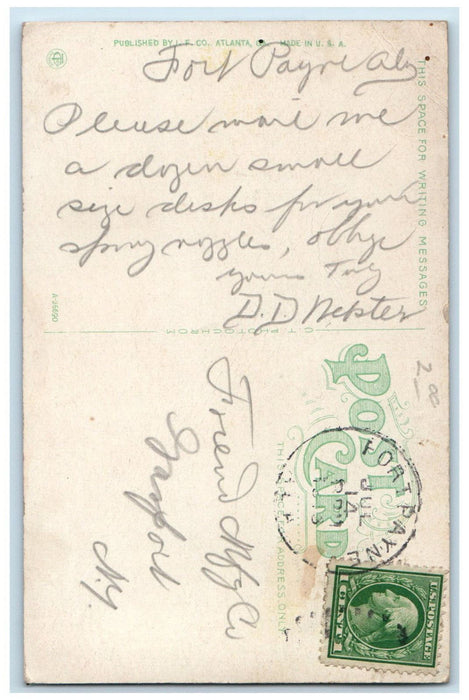 PUBLISHED BY I. F. CO. ATLANTA, GA. MADE IN U. S. A.
Fort Payne Ala
Please mail me
a dozen small
size disks for your
spray nozzles, oblige
yours Truly
D. D Webster
THIS SPACE FOR WRITING MESSAGES
A-26690
C. T. PHOTOCHROM
POST CARD
THIS SPACE FOR ADDRESS ONLY
2.00
FORT PAYNE
JUL
ALA
Friend Mfg Co
Gasport
N.Y.
U.S. POSTAGE
1 CENT 1